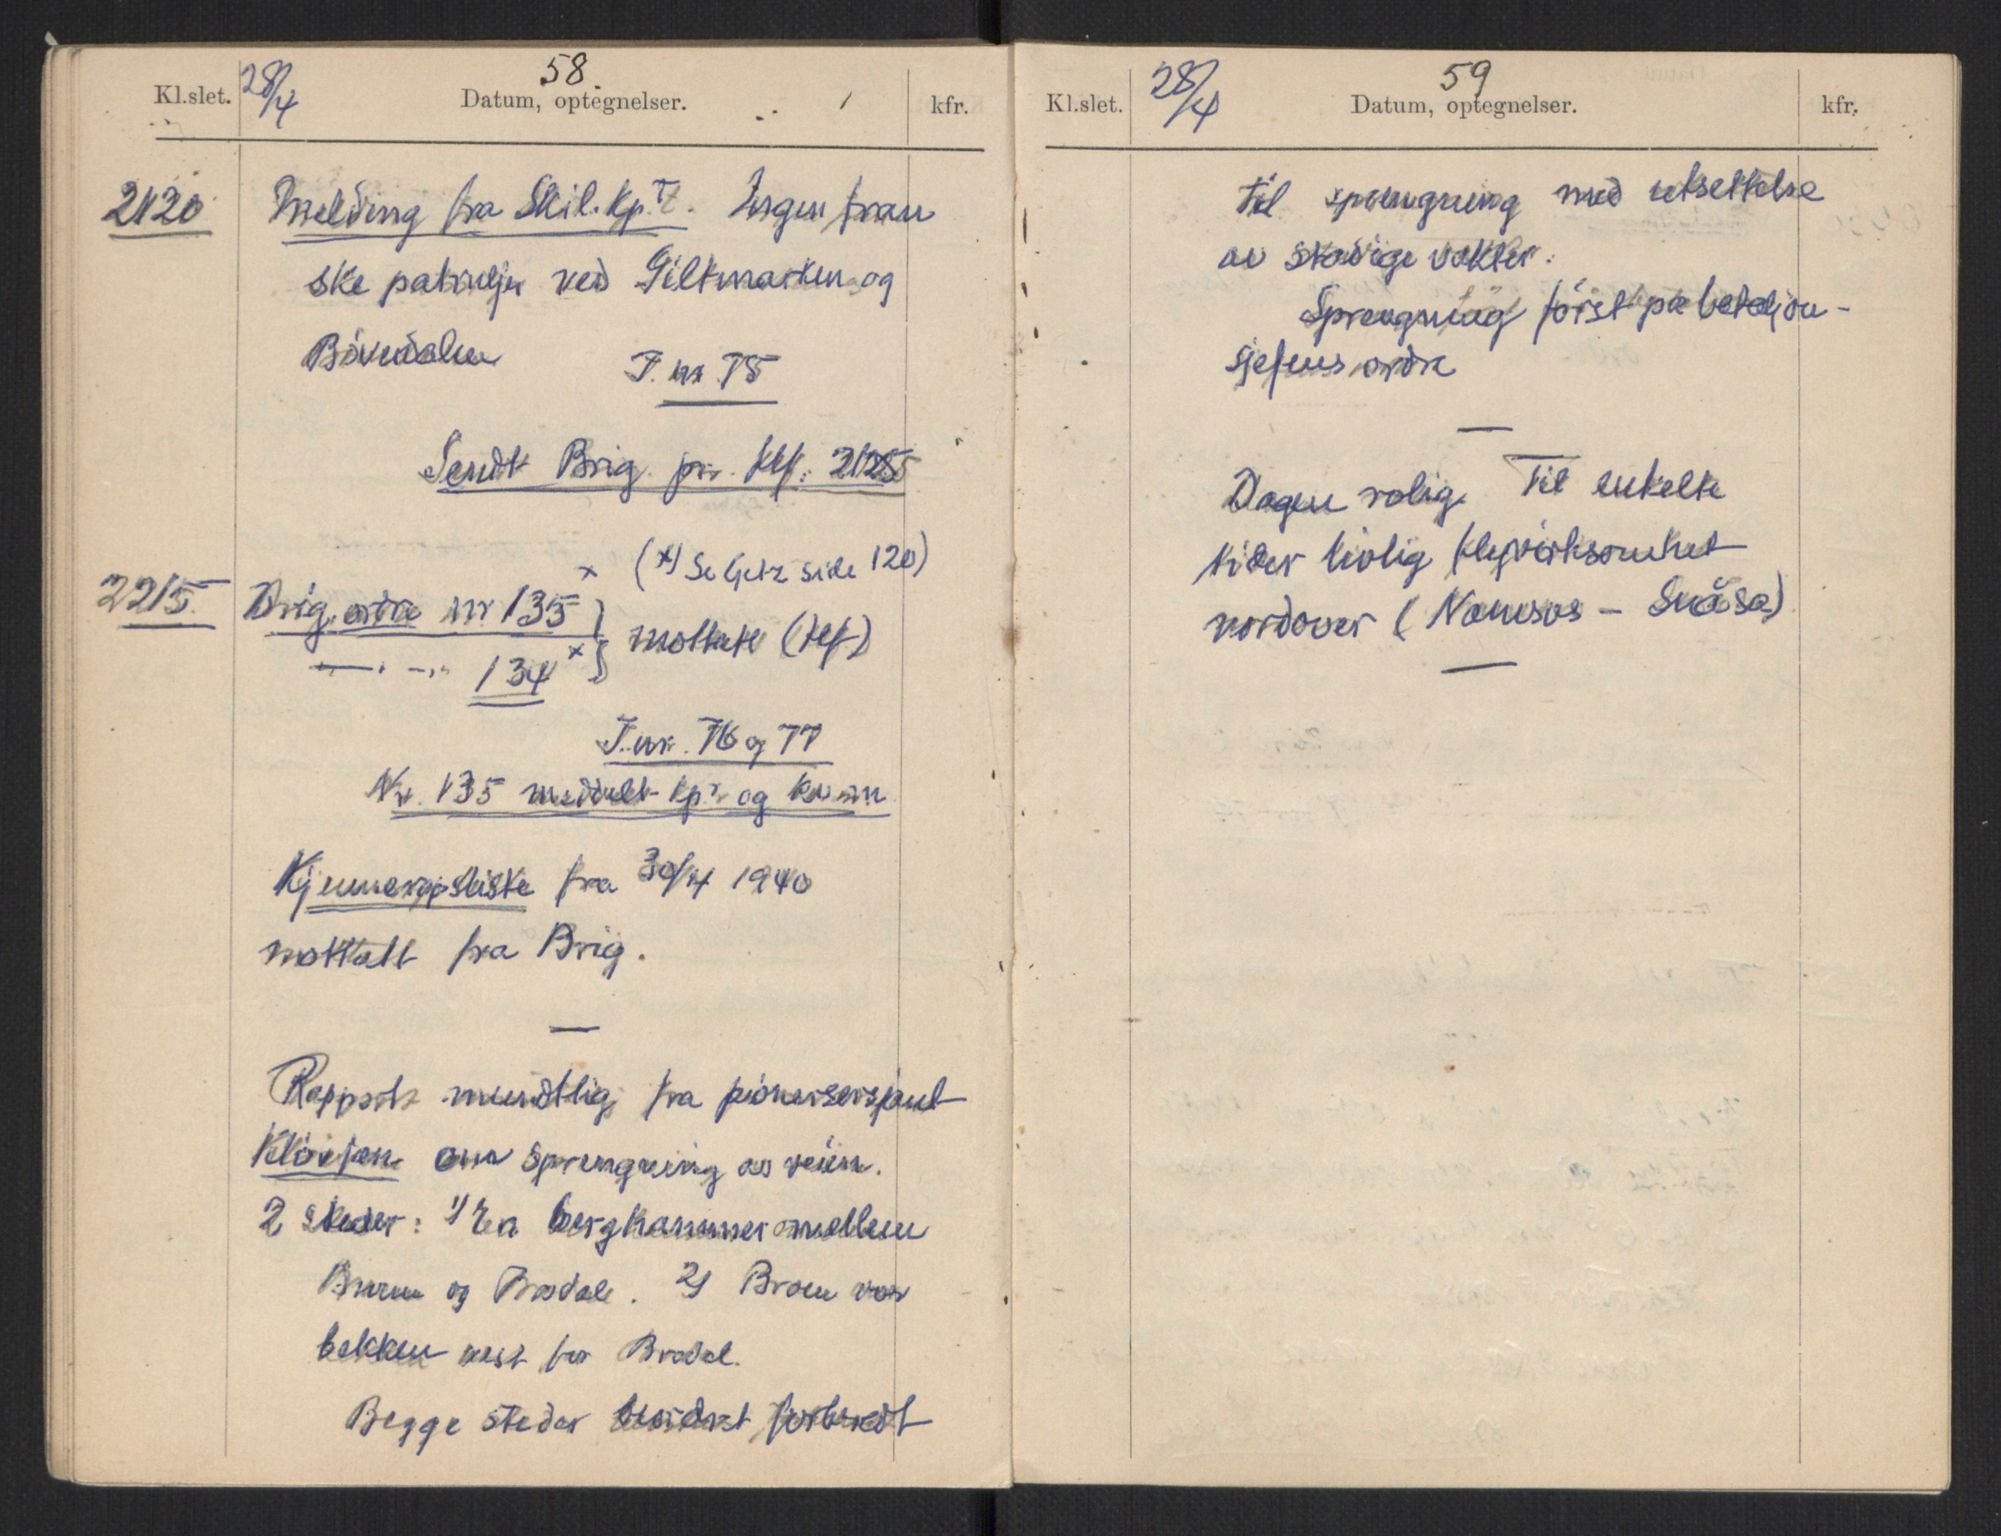 58
28/4
Kl.slet. Datum, optegnelser. kfr.
2120 Melding fra Skil.Kp.t. Ingen fran
ske patruljer ved Giltmarken og
Bövudalen
J. nr 75
Sendt Brig. pr. tlf. 2125
(x) Se Getz side 120)
2215. Brig.ordre nr 135 x
mottatt (tlf)
— " — " 134 x
J. nr. 76 og 77
Nr. 135 meddelt Kp. og Komm
Kjenneropsliste fra 30/4 1940
mottatt fra Brig.
—
Rapport mundtlig fra pionersersjant
Klövjan om sprengning av veien.
2 steder: 1/ En berghammer mellem
og Brodal. 2/ Broen over
bekken vest for Brodal.
Begge steder forberedt
59
28/4
Kl.slet. Datum, optegnelser. kfr.
til sprengning med utsettelse
av stadige vakter.
Sprengning först på bataljon-
sjefens ordre
—
Dagen rolig. Til enkelte
tider livlig flyvirksomhet
nordover (Namsos – Snåsa)
—